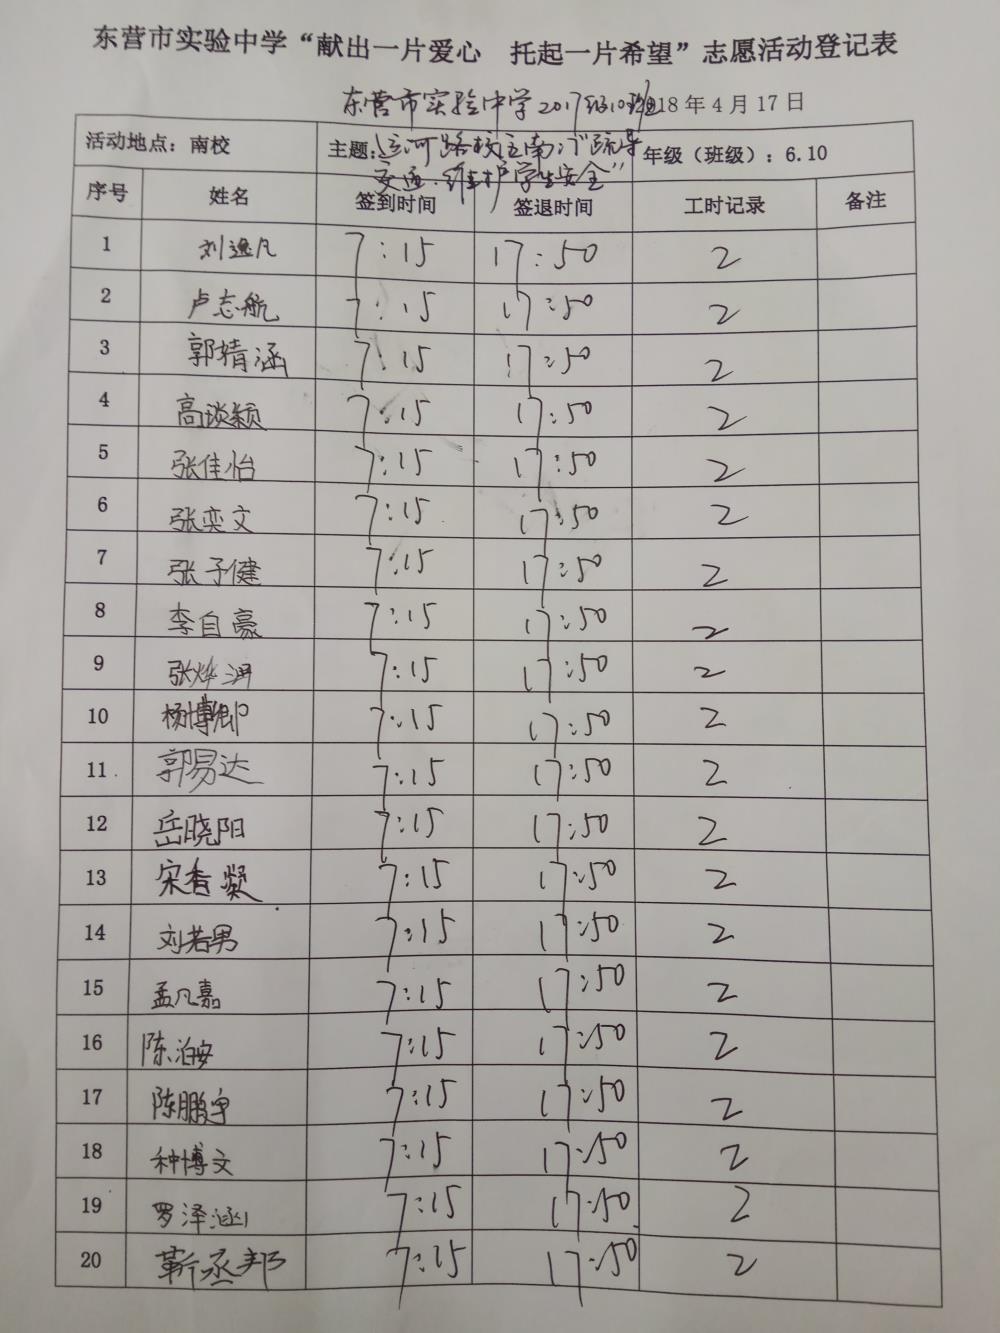 东营市实验中学“献出一片爱心 托起一片希望”志愿活动登记表
东营市实验中学2017级10班 2018年4月17日
活动地点：南校 主题：“运河路校区南门“疏导 年级（班级）：6.10
交通·维护学生安全”
序号 姓名 签到时间 签退时间 工时记录 备注
1 刘逸凡 7:15 17:50 2
2 卢志航 7:15 17:50 2
3 郭婧涵 7:15 17:50 2
4 高琰颖 7:15 17:50 2
5 张佳怡 7:15 17:50 2
6 张奕文 7:15 17:50 2
7 张子健 7:15 17:50 2
8 李自豪 7:15 17:50 2
9 张烨 7:15 17:50 2
10 杨博卿 7:15 17:50 2
11 郭易达 7:15 17:50 2
12 岳晓阳 7:15 17:50 2
13 宋香凝 7:15 17:50 2
14 刘若男 7:15 17:50 2
15 孟凡嘉 7:15 17:50 2
16 陈泊安 7:15 17:50 2
17 陈鹏宇 7:15 17:50 2
18 种博文 7:15 17:50 2
19 罗泽涵 7:15 17:50 2
20 靳丞邦 7:15 17:50 2